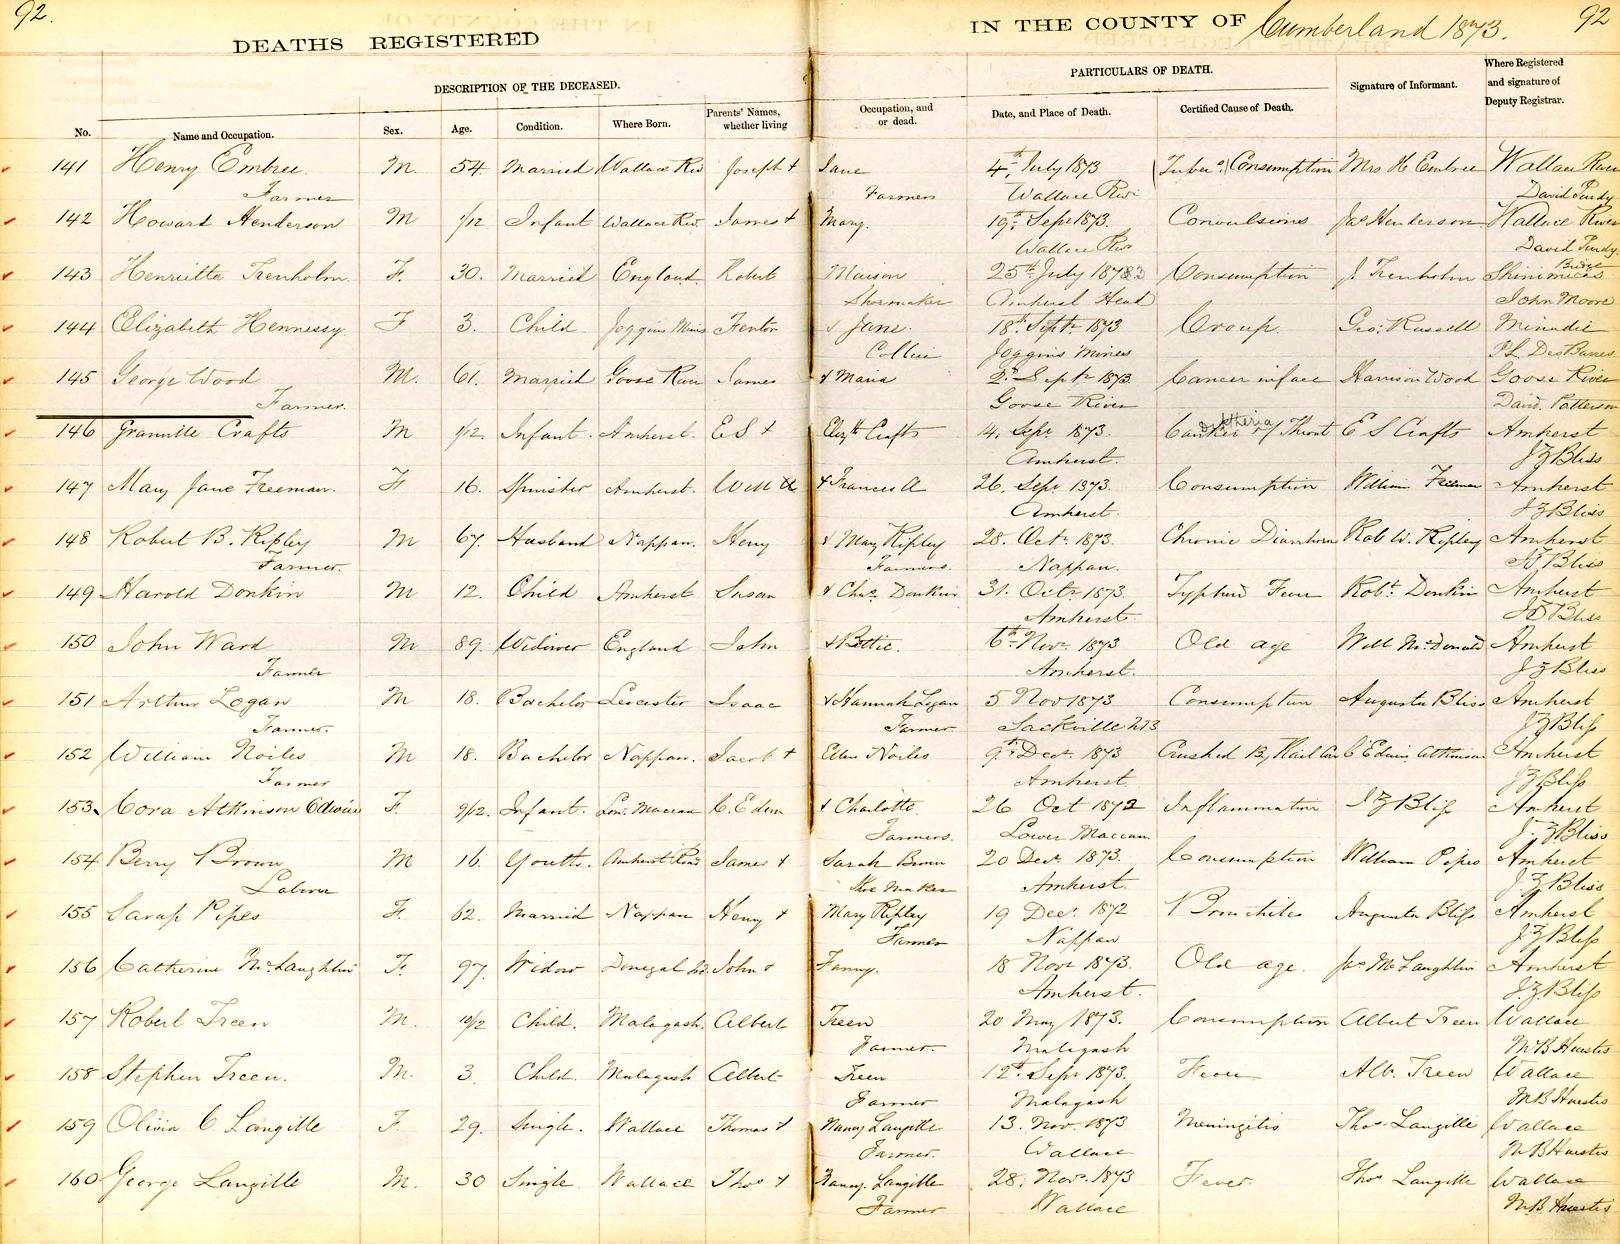 92. 92
DEATHS REGISTERED IN THE COUNTY OF Cumberland 1873.
DESCRIPTION OF THE DECEASED. PARTICULARS OF DEATH. Signature of Informant. Where Registered and signature of Deputy Registrar.
No. Name and Occupation. Sex. Age. Condition. Where Born. Parents' Names, whether living Occupation, and or dead. Date, and Place of Death. Certified Cause of Death.
141 Henry Embree M 54 Married Wallace Riv Joseph + Jane 4th July 1873 (Tuber.) Consumption Mrs H Embree Wallace River
Farmer Farmers Wallace Riv David Purdy
142 Howard Henderson M 1/12 Infant Wallace Riv. James + Mary. 19th Sept 1873. Convulsions Jas Henderson Wallace River
Wallace Riv David Purdy
143 Henrietta Trenholm F. 30. Married England Robert Marion 25th July 1873 Consumption J. Trenholm Shinimicas Bridge
Shoemaker Amherst Head John Moore
144 Elizabeth Hennessy. F 3. Child Joggins Mines Fenton & Jane. 18th Septr 1873 Croup. Geo: Russell Minudie
Collier Joggins Mines P.L. DesBarres
145 George Wood M. 61. Married Goose River James & Maria 2nd Septr 1873. Cancer in face Harrison Wood Goose River
Farmer. Goose River David Patterson
146 Granville Crafts M 1/12. Infant. Amherst. E S + Elizth Crafts 14. Sepr 1873. Canker of Throat Diptheria E S Crafts Amherst
Amherst. J Z Bliss
147 Mary Jane Freeman. F 16. Spinster Amherst. Will + Frances A 26. Sepr 1873. Consumption William Freeman Amherst
Amherst. J Z Bliss
148 Robert B. Ripley M 67. Husband Nappan. Henry & Mary Ripley 28. Octr 1873. Chronic Diarrhoea Rob W. Ripley Amherst
Farmer. Farmers. Nappan. J Z Bliss
149 Harold Donkin M 12. Child Amherst Susan & Chas. Donkin 31. Octr 1873. Typhoid Fever Robt. Donkin Amherst
Amherst. J Z Bliss
150 John Ward M 89. Widower England John & Bettie. 6th Novr 1873 Old age Will McDonald Amherst
Farmer Amherst. J Z Bliss
151 Arthur Logan M 18. Bachelor Leicester Isaac & Hannah Logan 5 Nov 1873 Consumption Augusta Bliss Amherst
Farmer. Farmer. Sackville NB J Z Bliss
152 William Noiles M 18. Bachelor Nappan. Jacob + Ellen Noiles 9th Decr 1873 Crushed By Rail Car C Edwin Atkinson Amherst
Farmer Amherst J Z Bliss
153. Cora Atkinson Edwin F. 9/12. Infant. Low. Maccan C. Edwin & Charlotte 26 Oct 1872 Inflammation J Z Bliss Amherst
Farmers. Lower Maccan J. Z Bliss
154 Berry Brown M 16. Youth. Amherst Road James + Sarah Brown 20 Decr 1873. Consumption William Pipes Amherst
Labour Shoe Maker Amherst. J. Z Bliss
155 Sarah Pipes F. 62. Married Nappan Henry + Mary Ripley 19 Decr 1872 Bronchites Augusta Bliss Amherst
Farmer Nappan J Z Bliss
156 Catherine McLaughlin F. 97. Widow Donegal Ird. John & Fanny. 18 Novr 1873. Old age. Jas McLaughlin Amherst
Amherst. J. Z Bliss
157 Robert Treen M. 10/12 Child. Malagash. Albert Treen 20 May 1873. Consumption Albert Treen Wallace
Farmer. Malagash M B Huestis
158 Stephen Treen. M. 3 Child. Malagash Albert Treen 12th Sepr 1873. Fever Alb. Treen Wallace
Farmer Malagash M B Huestis
159 Olivia C. Langille F. 29. Single. Wallace Thomas & Nancy Langille 13. Nov. 1873 Meningitis Thos. Langille Wallace
Farmer. Wallace M B Huestis
160 George Langille M. 30 Single Wallace Thos + Nancy. Langille 28. Novr. 1873 Fever Thos Langille Wallace
Farmer Wallace M.B. Huestis